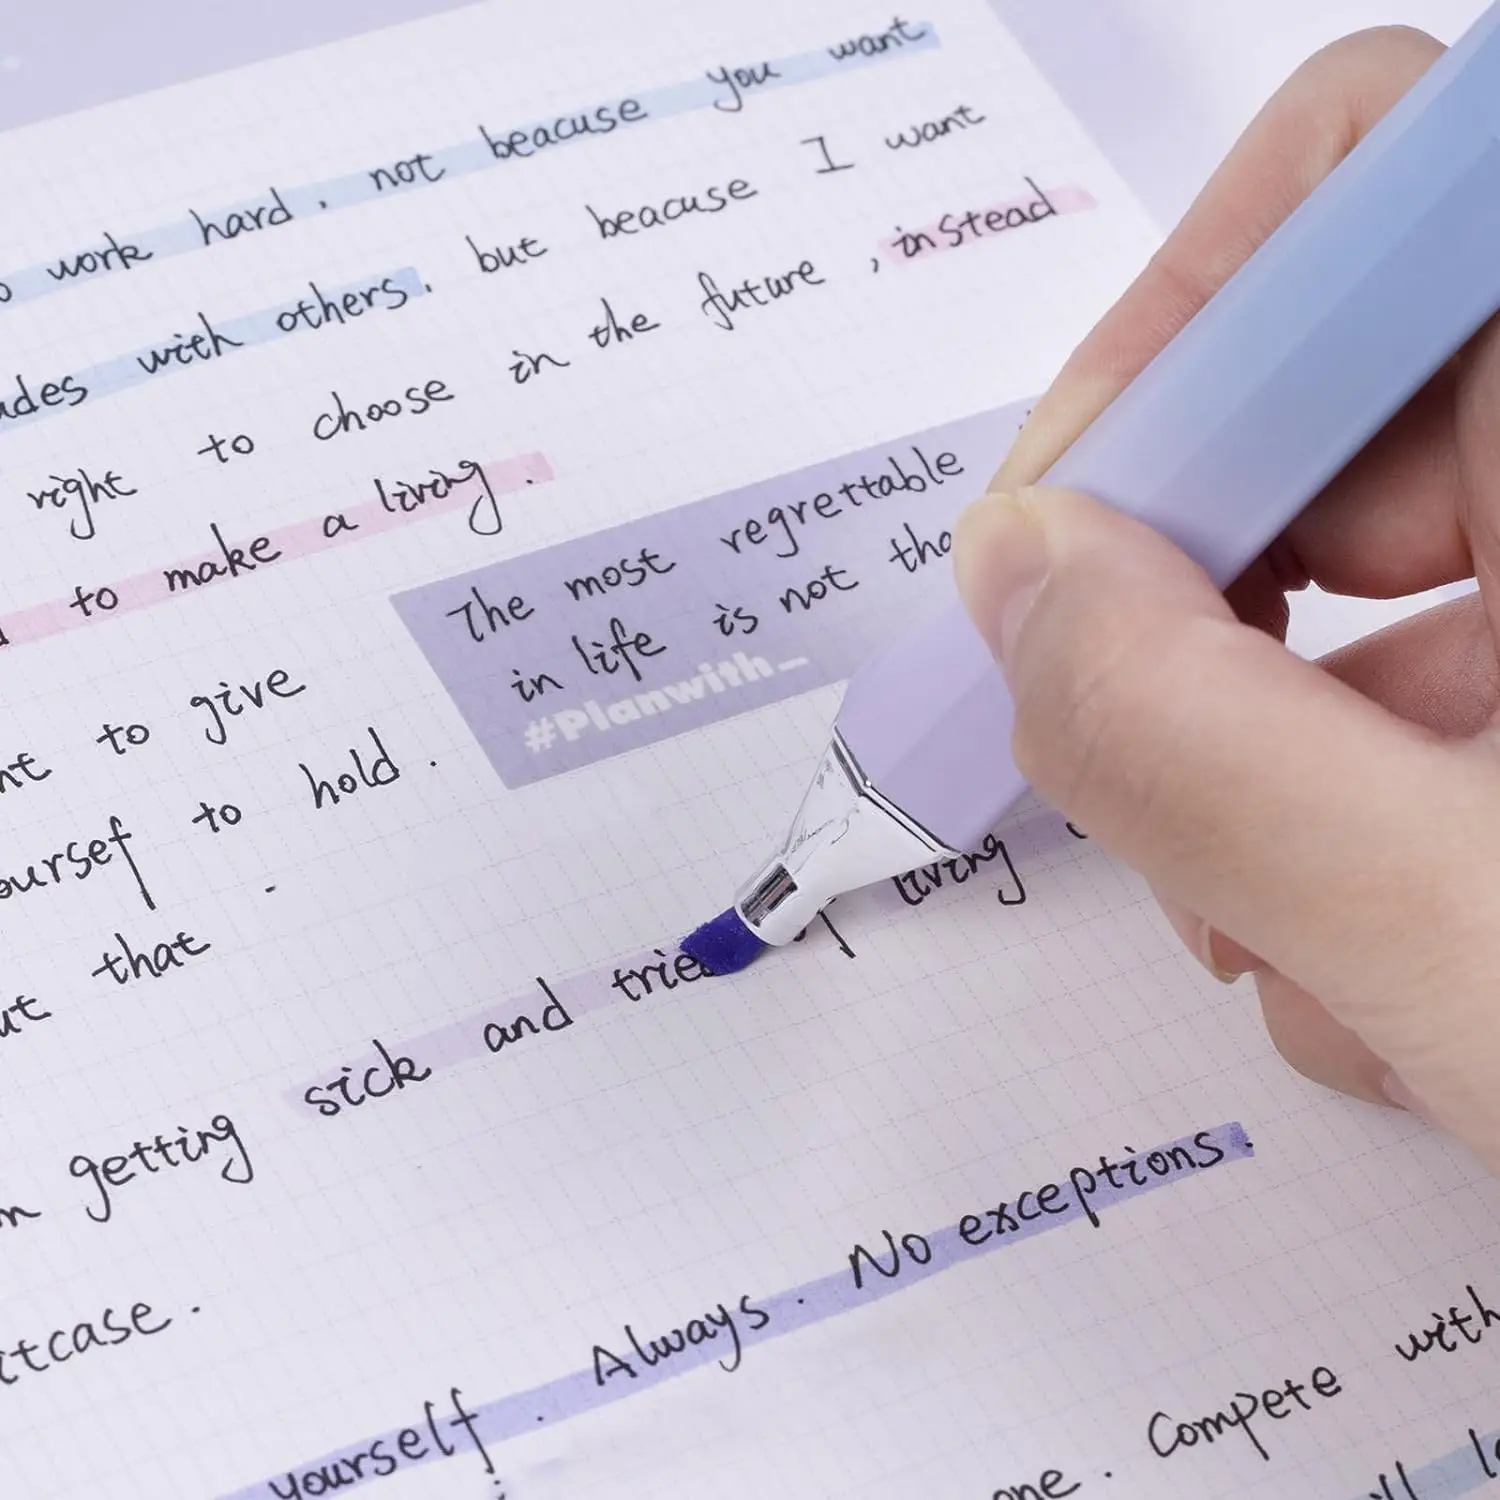 work hard, not beacuse you want
with others, but beacuse I want
right to choose in the future, instead
to make a living.
The most regrettable
in life is not
#Planwith_
to give
to hold.
that
getting sick and living
yourself. Always. No exceptions.
Compete with